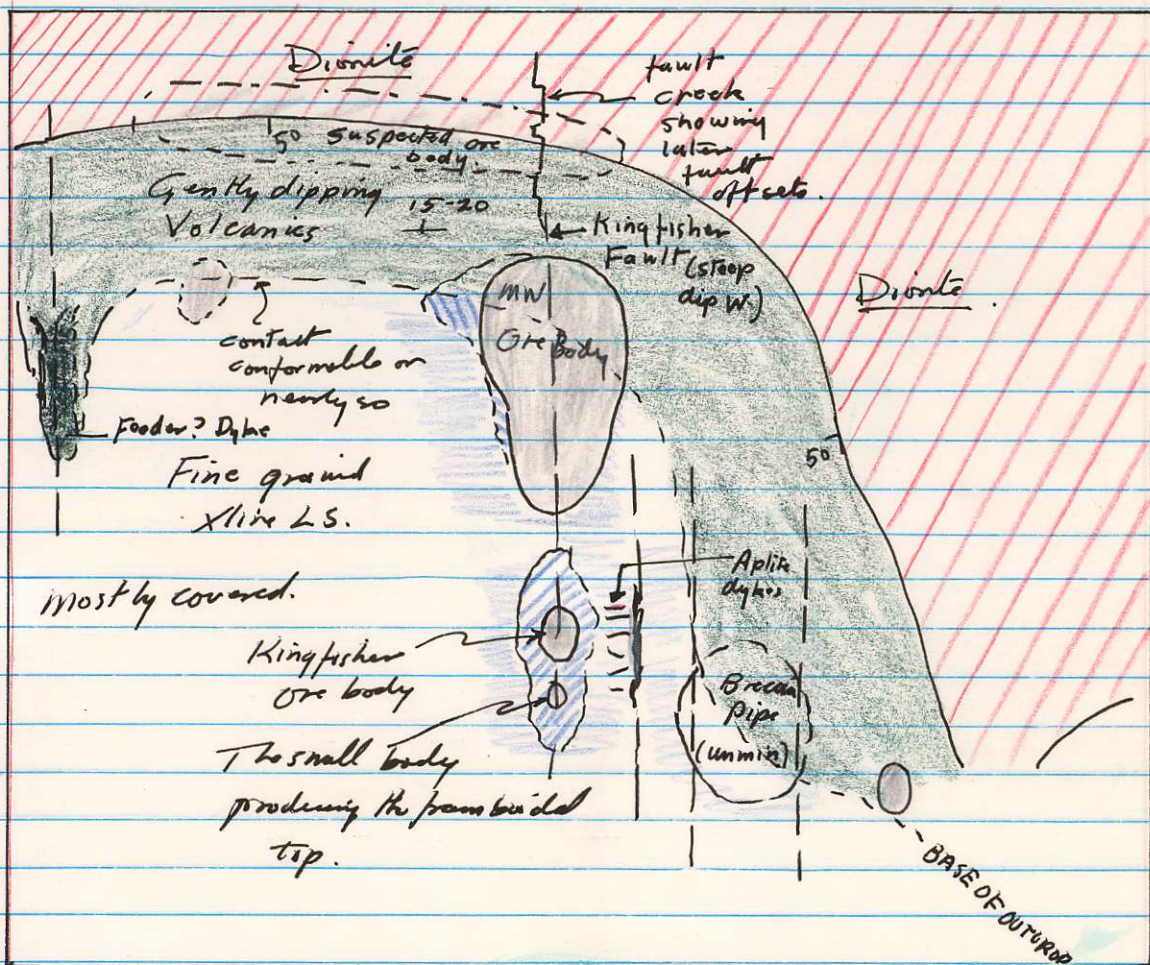 Diorite
fault
creek
showing
later
fault
offsets.
50 suspected ore
body.
Gently dipping
Volcanics
15-20
Kingfisher
Fault (steep
dip W)
Diorite.
MW
Ore Body
contact
conformable or
nearly so
Feeder? Dyke
50
Fine graind
Xline LS.
Aplite
dykes
mostly covered.
Kingfisher
ore body
Breccia
Pipe
(unmin)
The small body
producing the framboidal
top.
BASE OF OUTCROP